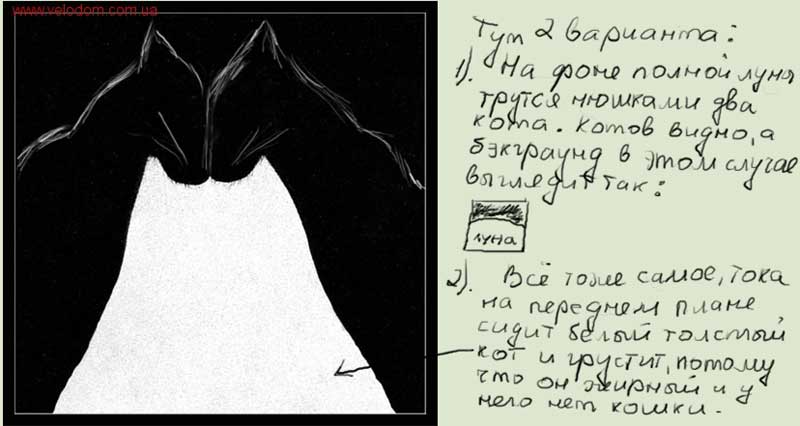 www.velodom.com.ua
Тут 2 варианта:
1). На фоне полной луны
трутся нюшками два
кота. Котов видно, а
бэкграунд в этом случае
выглядит так:
луна
2). Всё тоже самое, тока
на переднем плане
сидит белый толстый
кот и грустит, потому
что он жирный и у
него нет кошки.